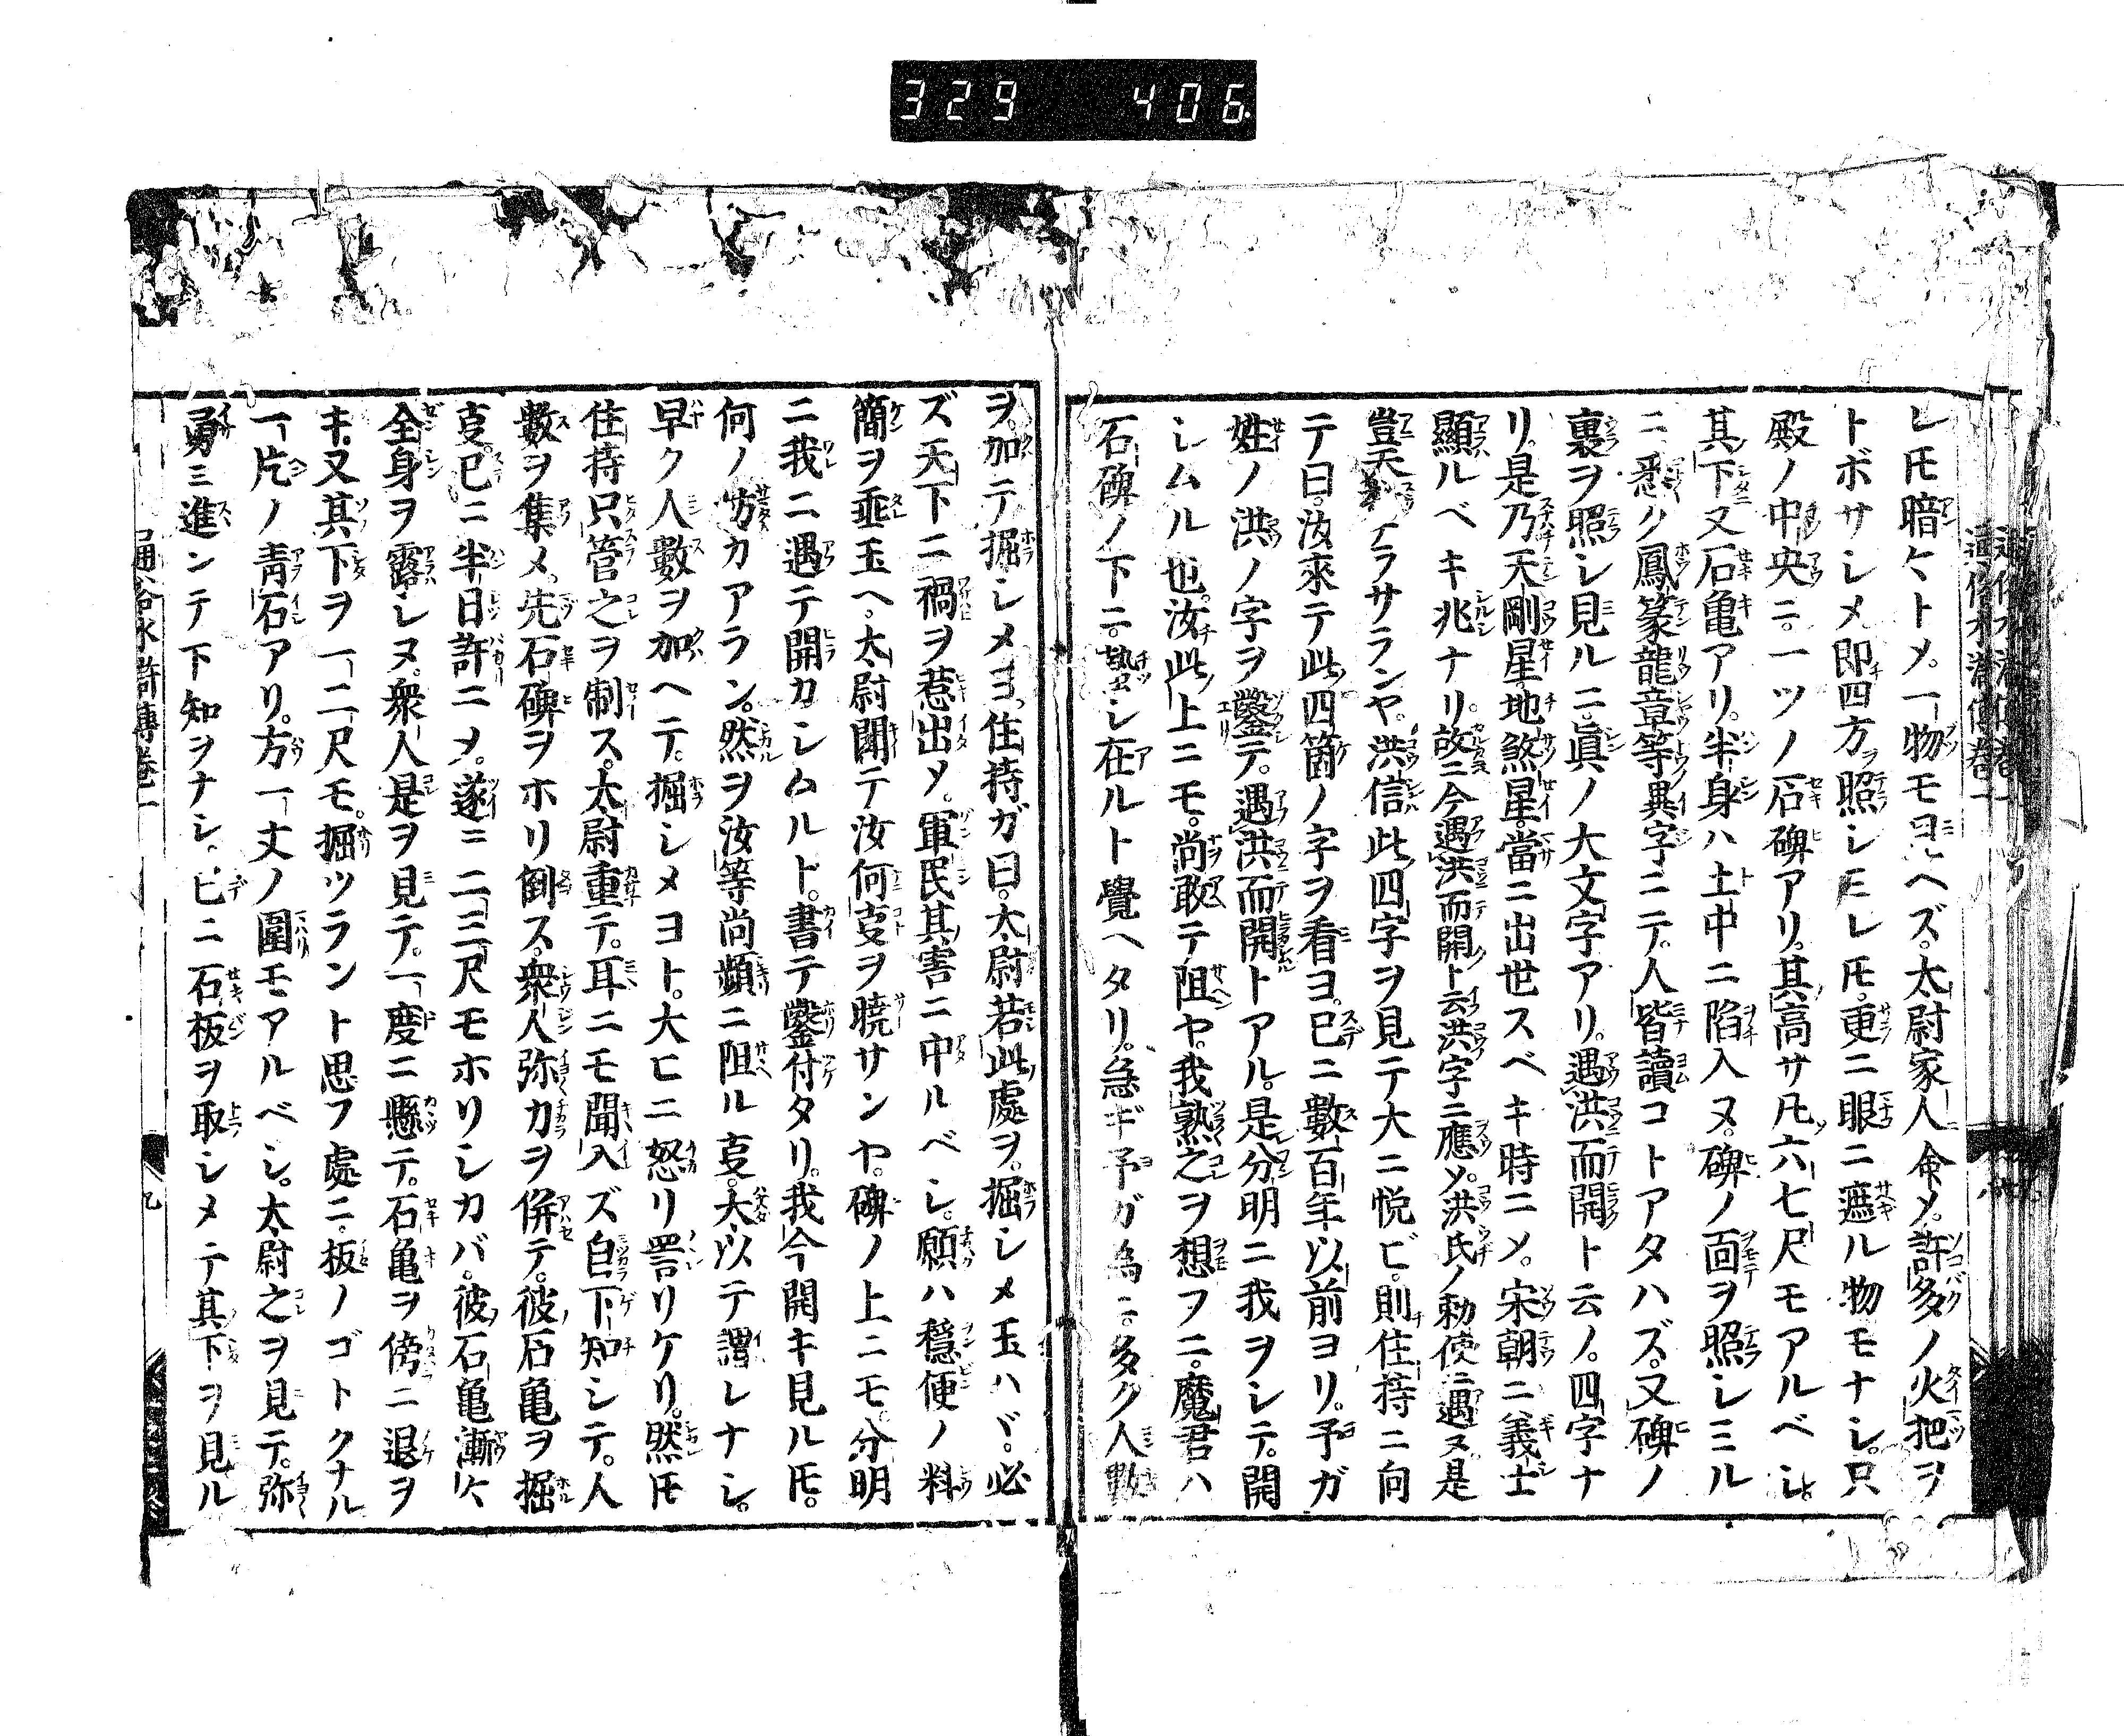 329 406
レ𪜈暗フトメ。一物モミヘズ。太尉家人ニ命〆。許多ノ火把ヲ
トボサシメ即四方ヲ照シミレ𪜈。更ニ眼ニ遮ル物モナシ。只
殿ノ中央ニ。一ツノ石碑アリ。其高サ凡六七尺モアルベシ。
其下又石亀アリ。半身ハ土中ニ陷入ヌ。碑ノ面ヲ照シミル
ニ悉ク鳳篆龍章等異字ニテ。人皆讀コトアタハズ。又碑ノ
裏ヲ照シ見ルニ。眞ノ大文字アリ。遇洪而開ト云ノ。四字ナ
リ。是乃天剛星。地煞星。當ニ出世スベキ時ニ〆。宋朝ニ義士
顯ルベキ兆ナリ。故ニ今遇洪而開ト云洪字ニ應〆。洪氏ノ勅使ニ遇ヌ。是
豈天數ナラサランヤ。洪信此四字ヲ見テ大ニ悦ビ。則住持ニ向
テ曰。汝來テ此四箇ノ字ヲ看ヨ。已ニ數百年以前ヨリ。予ガ
姓ノ洪ノ字ヲ鑿テ。遇洪而開トアル。是分明ニ我ヲシテ。開
シムル也。汝此上ニモ。尚敢テ阻ヤ。我熟之ヲ想フニ。魔君ハ
石碑ノ下ニ。蟄シ在ルト覺ヘタリ。急ギ予ガ為ニ。多ク人數
ヲ加テ掘シメヨ。住持ガ曰。太尉若此處ヲ。掘シメ玉ハヾ。必
ズ天下ニ禍ヲ惹出〆。軍民其害ニ中ルベシ。願ハ穩便ノ料
簡ヲ垂玉ヘ。太尉聞テ汝何叓ヲ曉サンヤ。碑ノ上ニモ。分明
ニ我ニ遇テ開カシムルト。書テ鑿付タリ。我今開キ見ル𪜈。
何ノ妨カアラン。然ヲ汝等尚頻ニ阻ル叓。大以テ謂レナシ。
早ク人數ヲ加ヘテ。掘シメヨト。大ヒニ怒リ詈リケリ。然𪜈
住持只管之ヲ制ス。太尉重テ。耳ニモ聞入ズ自下知シテ。人
數ヲ集メ。先石碑ヲホリ倒ス。衆人弥力ヲ併テ。彼石亀ヲ掘
叓。已ニ半日許ニ〆。遂ニ二三尺モホリシカバ。彼石亀漸ク
全身ヲ露シヌ。衆人是ヲ見テ。一度ニ懸テ。石亀ヲ傍ニ退ヲ
キ。又其下ヲ一二尺モ。掘ツラント思フ處ニ。板ノゴトクナル
一片ノ青石アリ。方一丈ノ圍モアルベシ。太尉之ヲ見テ。弥
勇ミ進ンテ下知ヲナシ。已ニ石板ヲ取シメテ其下ヲ見ル
通俗水滸傳卷一
九